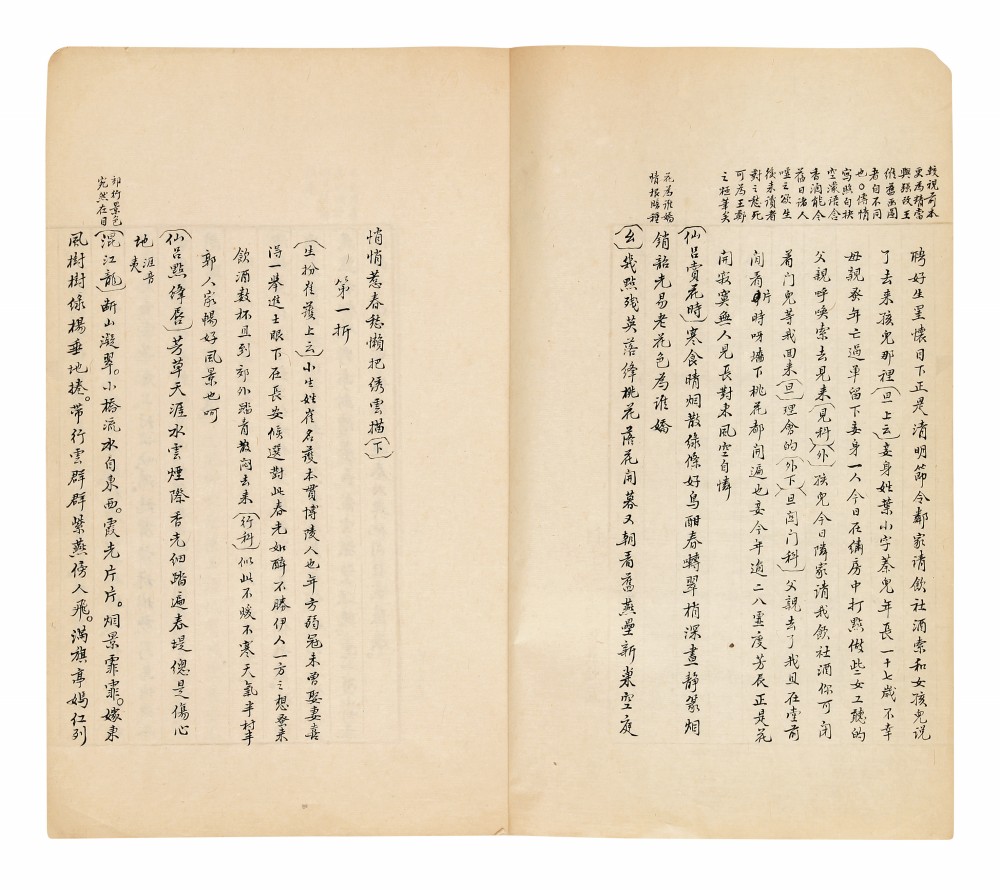 較視前本
更為精當
與孫改王
維舊畫圖
者自不同
也○傳情
寫照句抉
空濛語念
香滴能令
舊日諸人
嗟之欲生
後來讀者
對之愁死
可為
之極筆矣
聘好生罣懷目下正是清明節令鄰家請飲社酒索和女孩兒説
了去來孩兒那裡(旦上云)妾身姓葉小字蓁兒年長一十七歲不幸
母親蚤年亡過單留下妾身一人今日在繡房中打點做些女工聽的
父親呼喚索去見來(見科)(外)孩兒今日隣家請我飲社酒你可閉
着門兒等我回來(旦)理會的(外下)(旦閉門科)父親去了我且在堂前
閒看片時呀墻下桃花都開遍也妾今年適二八虛度芳辰正是花
開寂寞無人見長對東風空自憐
花為誰嬌
情根臨種
(仙吕賞花時)寒食晴烟散綠條好鳥酣春囀翠梢深晝靜篆烟
銷韶光易老花色為誰嬌
(幺)幾點殘英落絳桃花落花開暮又朝看舊燕壘新巢空庭
悄悄惹春愁懶把綉雲描(下)
第一折
(生扮崔護上云)小生姓崔名護本貫博陵人也年方弱冠未曾娶妻喜
得一舉進士眼下在長安候選對此春光如醉不勝伊人一方之想蚤來
飲酒數杯且到郊外踏青散悶去來(行科)似此不暖不寒天氣半村半
郭人家暢好風景也呵
(仙吕點絳唇)芳草天涯水雲煙際香光細踏遍春堤總是傷心
地 涯音夷
郊行景色
宛然在目
(混江龍)斷山凝翠。小橋流水自東西。霞光片片。烟景霏霏。嫁東
風樹樹綠楊垂地捲。帶行雲群群紫燕傍人飛。滿旗亭嫣紅列